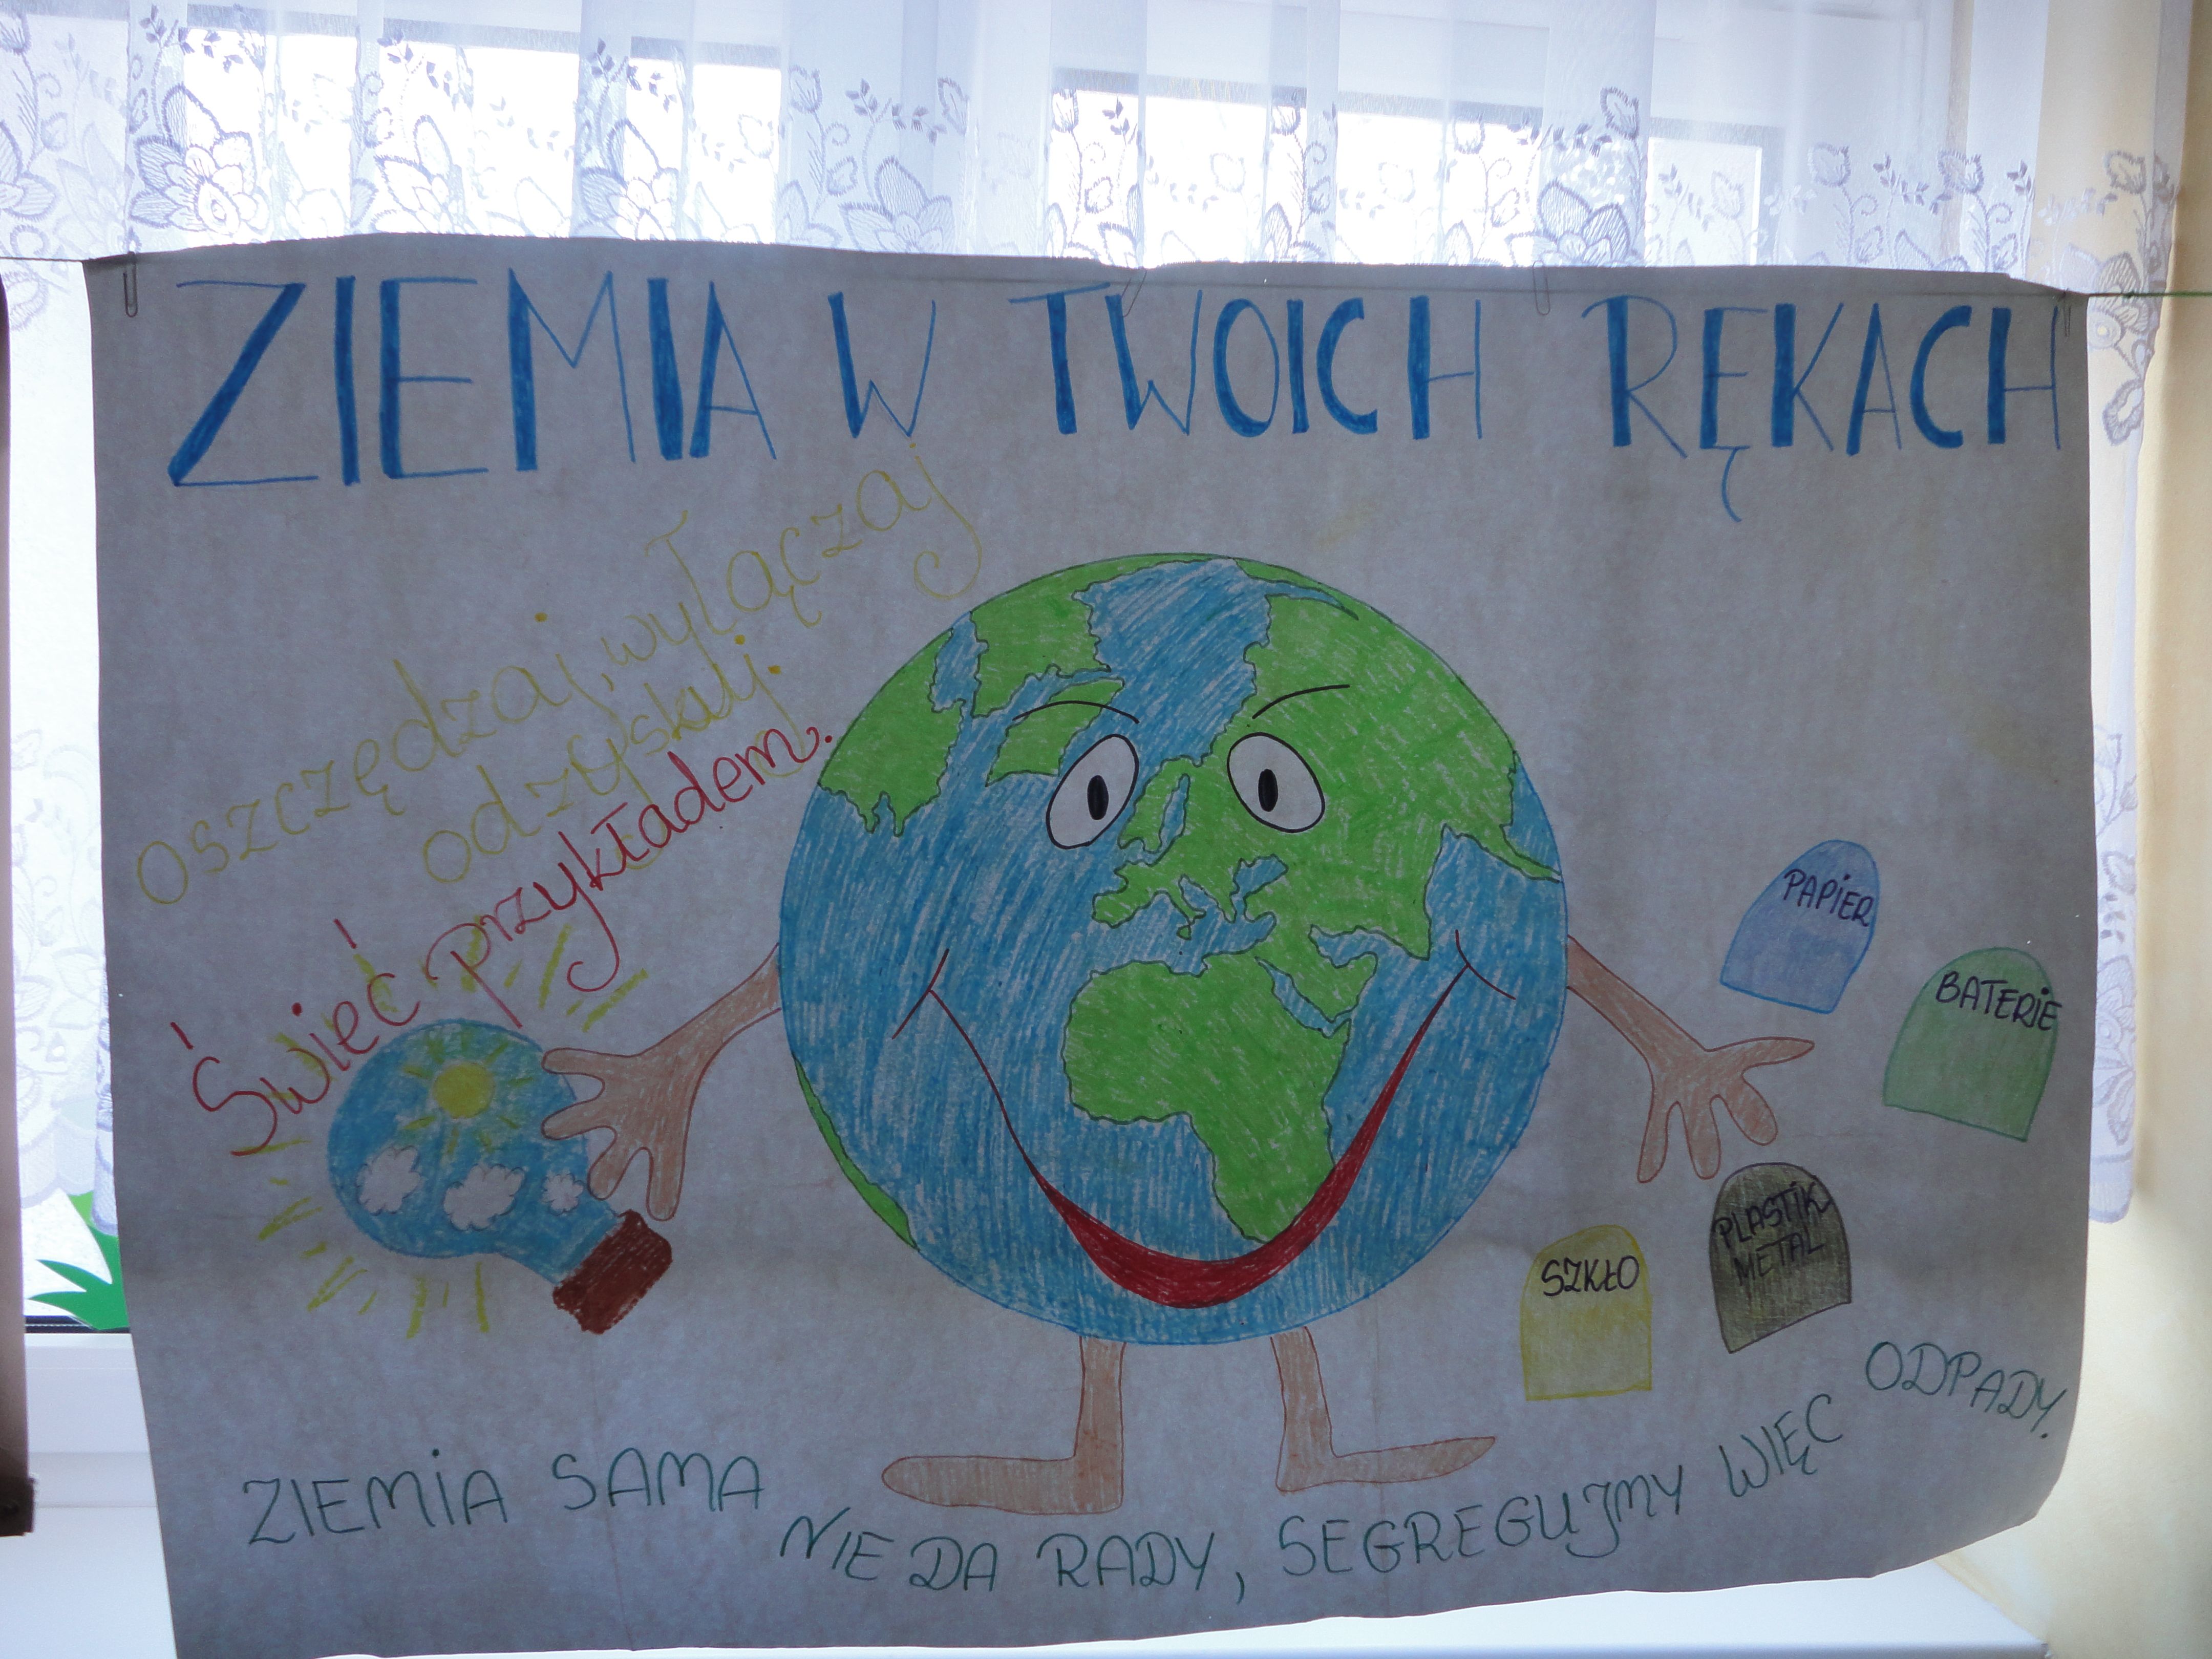 ZIEMIA W TWOICH RĘKACH
oszczędzaj, wyłączaj
odzyskuj.
Świeć przykładem.
PAPIER
BATERIE
PLASTIK
METAL
SZKŁO
ZIEMIA SAMA NIE DA RADY, SEGREGUJMY WIĘC ODPADY.